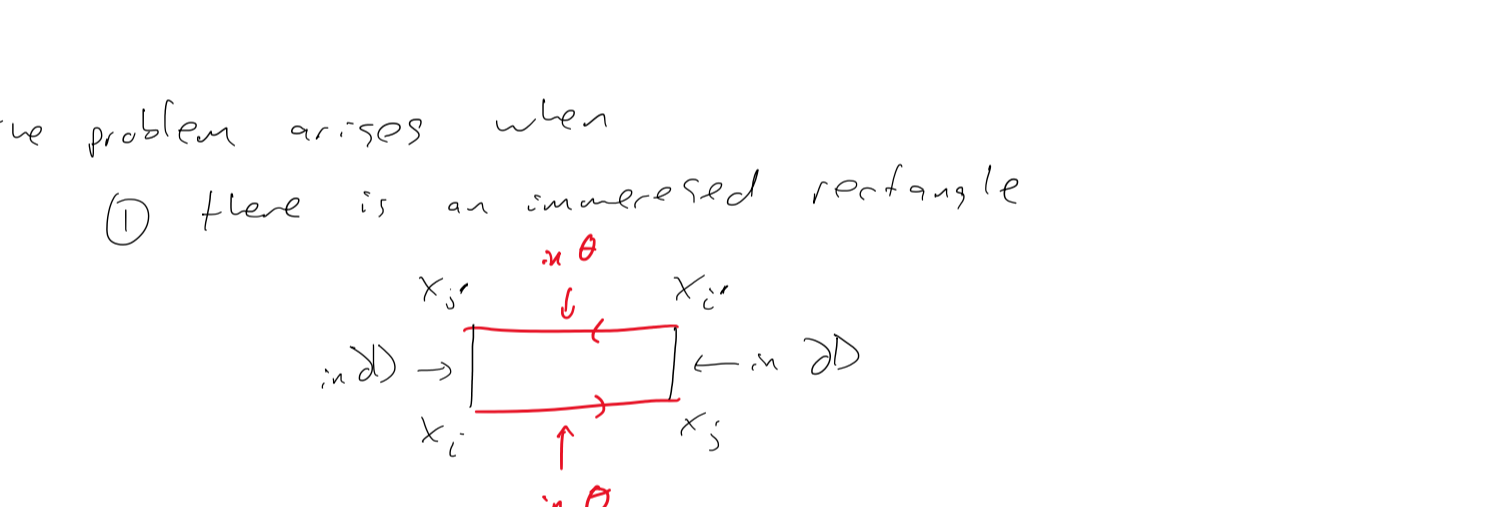 problem arises when
① there is an immeresed rectangle
in θ
x_j' x_i'
in ∂D → ← in ∂D
x_i x_j
in θ